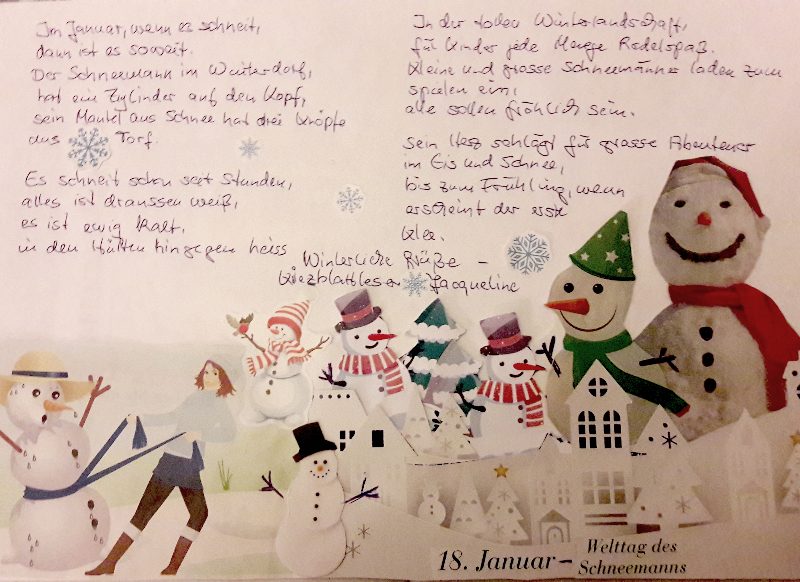 Im Januar, wenn es schneit,
dann ist es soweit.
Der Schneemann im Winterdorf,
hat ein Zylinder auf den Kopf,
sein Mantel aus Schnee hat drei Knöpfe
aus Torf.
Es schneit schon seit Stunden,
alles ist draussen weiß,
es ist ewig kalt,
in den Hütten hingegen heiss
In der tollen Winterlandschaft,
für Kinder jede Menge Rodelspaß.
Kleine und grosse Schneemänner laden zum
spielen ein,
alle sollen fröhlich sein.
Sein Herz schlägt für grosse Abenteuer
im Eis und Schnee,
bis zum Frühling, wenn
erscheint der erste
Klee.
Winterliche Grüße –
Kiezblattleserin Jacqueline
18. Januar – Welttag des
Schneemanns